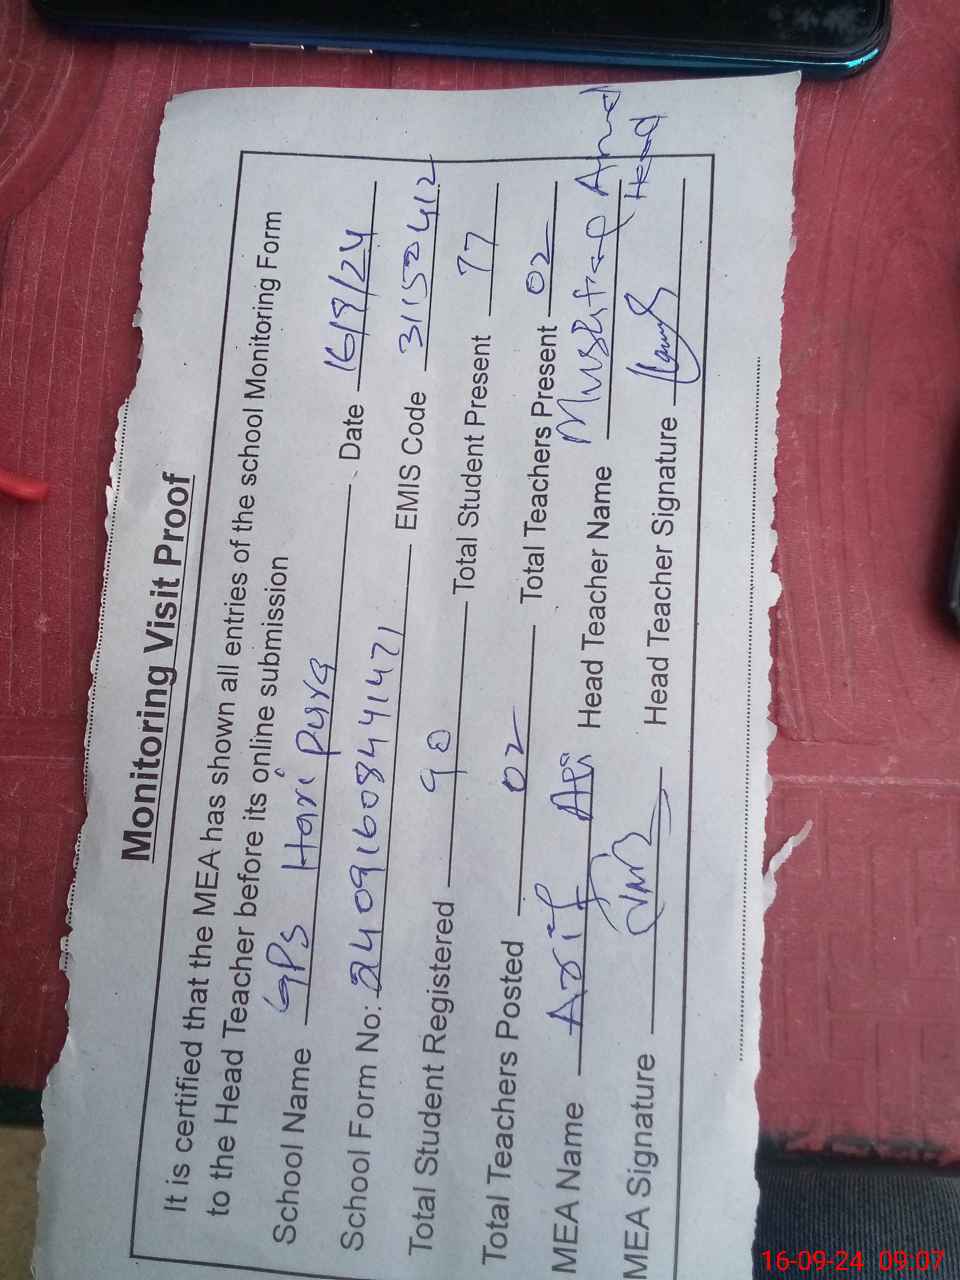 Monitoring Visit Proof
It is certified that the MEA has shown all entries of the school Monitoring Form
to the Head Teacher before its online submission
School Name GPS Hari pura Date 16/9/24
School Form No: 24091608441471 EMIS Code 31152412
Total Student Registered 90 Total Student Present 77
Total Teachers Posted 02 Total Teachers Present 02
MEA Name Arif Ali Head Teacher Name Mushtaq
MEA Signature Head Teacher Signature
16-09-24 09:07